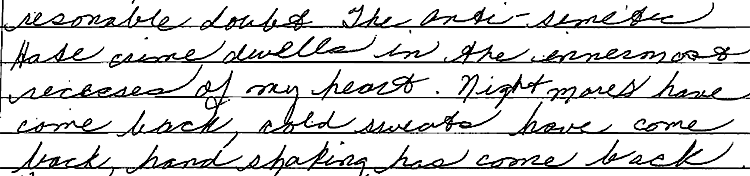 resonable doubt The anti-simetic
Hate crime dwells in the innermost
recesses of my heart. Nightmares have
come back, cold sweats have come
back, hand shaking has come back.